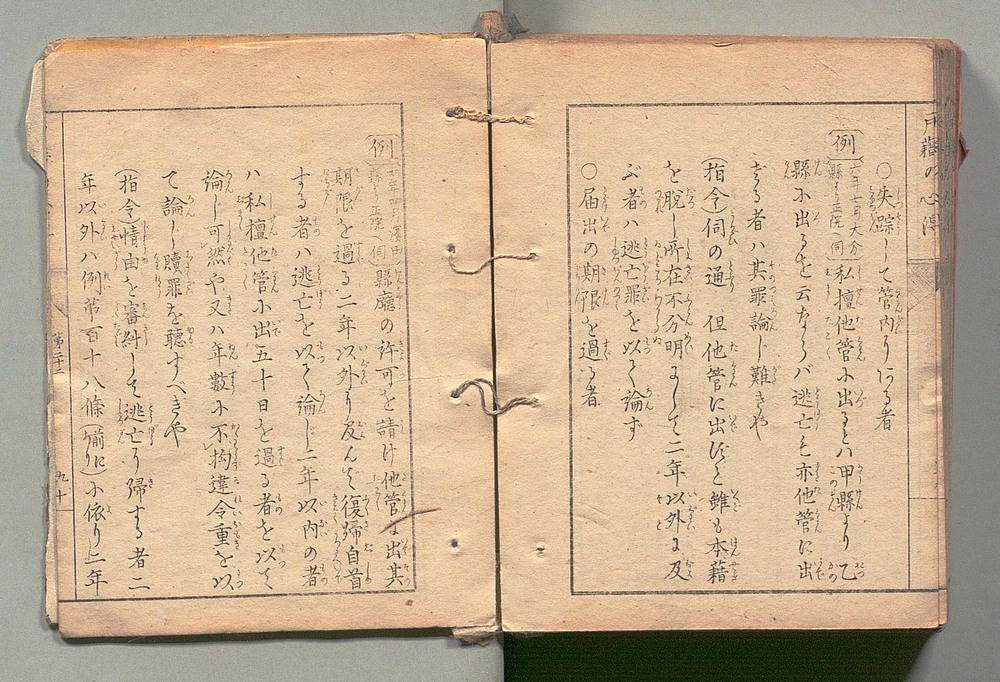 戸籍の心得
○失踪して管内にある者
例 六年七月大分縣より正院伺 私擅他管に出るとハ甲縣より乙
縣に出るを云ならバ逃亡も亦他管に出
ざる者ハ其罪論じ難きや
(指令)伺の通 但他管に出ずと雖も本籍
を脱し所在不分明にして二年以外に及
ぶ者ハ逃亡罪を以て論ず
○届出の期限を過る者
例 縣より正院伺 縣廳の許可を請け他管に出其
期限を過る二年以外に及んで復帰自首
する者ハ逃亡を以て論じ二年以内の者
ハ私擅他管に出五十日を過る者を以て
論じ可然や又ハ年數に不拘違令重を以
て論じ贖罪を聴すべきや
(指令)情由を審糾して逃亡に帰する者二
年以外ハ例第百十八條(前に)に依り二年
九十